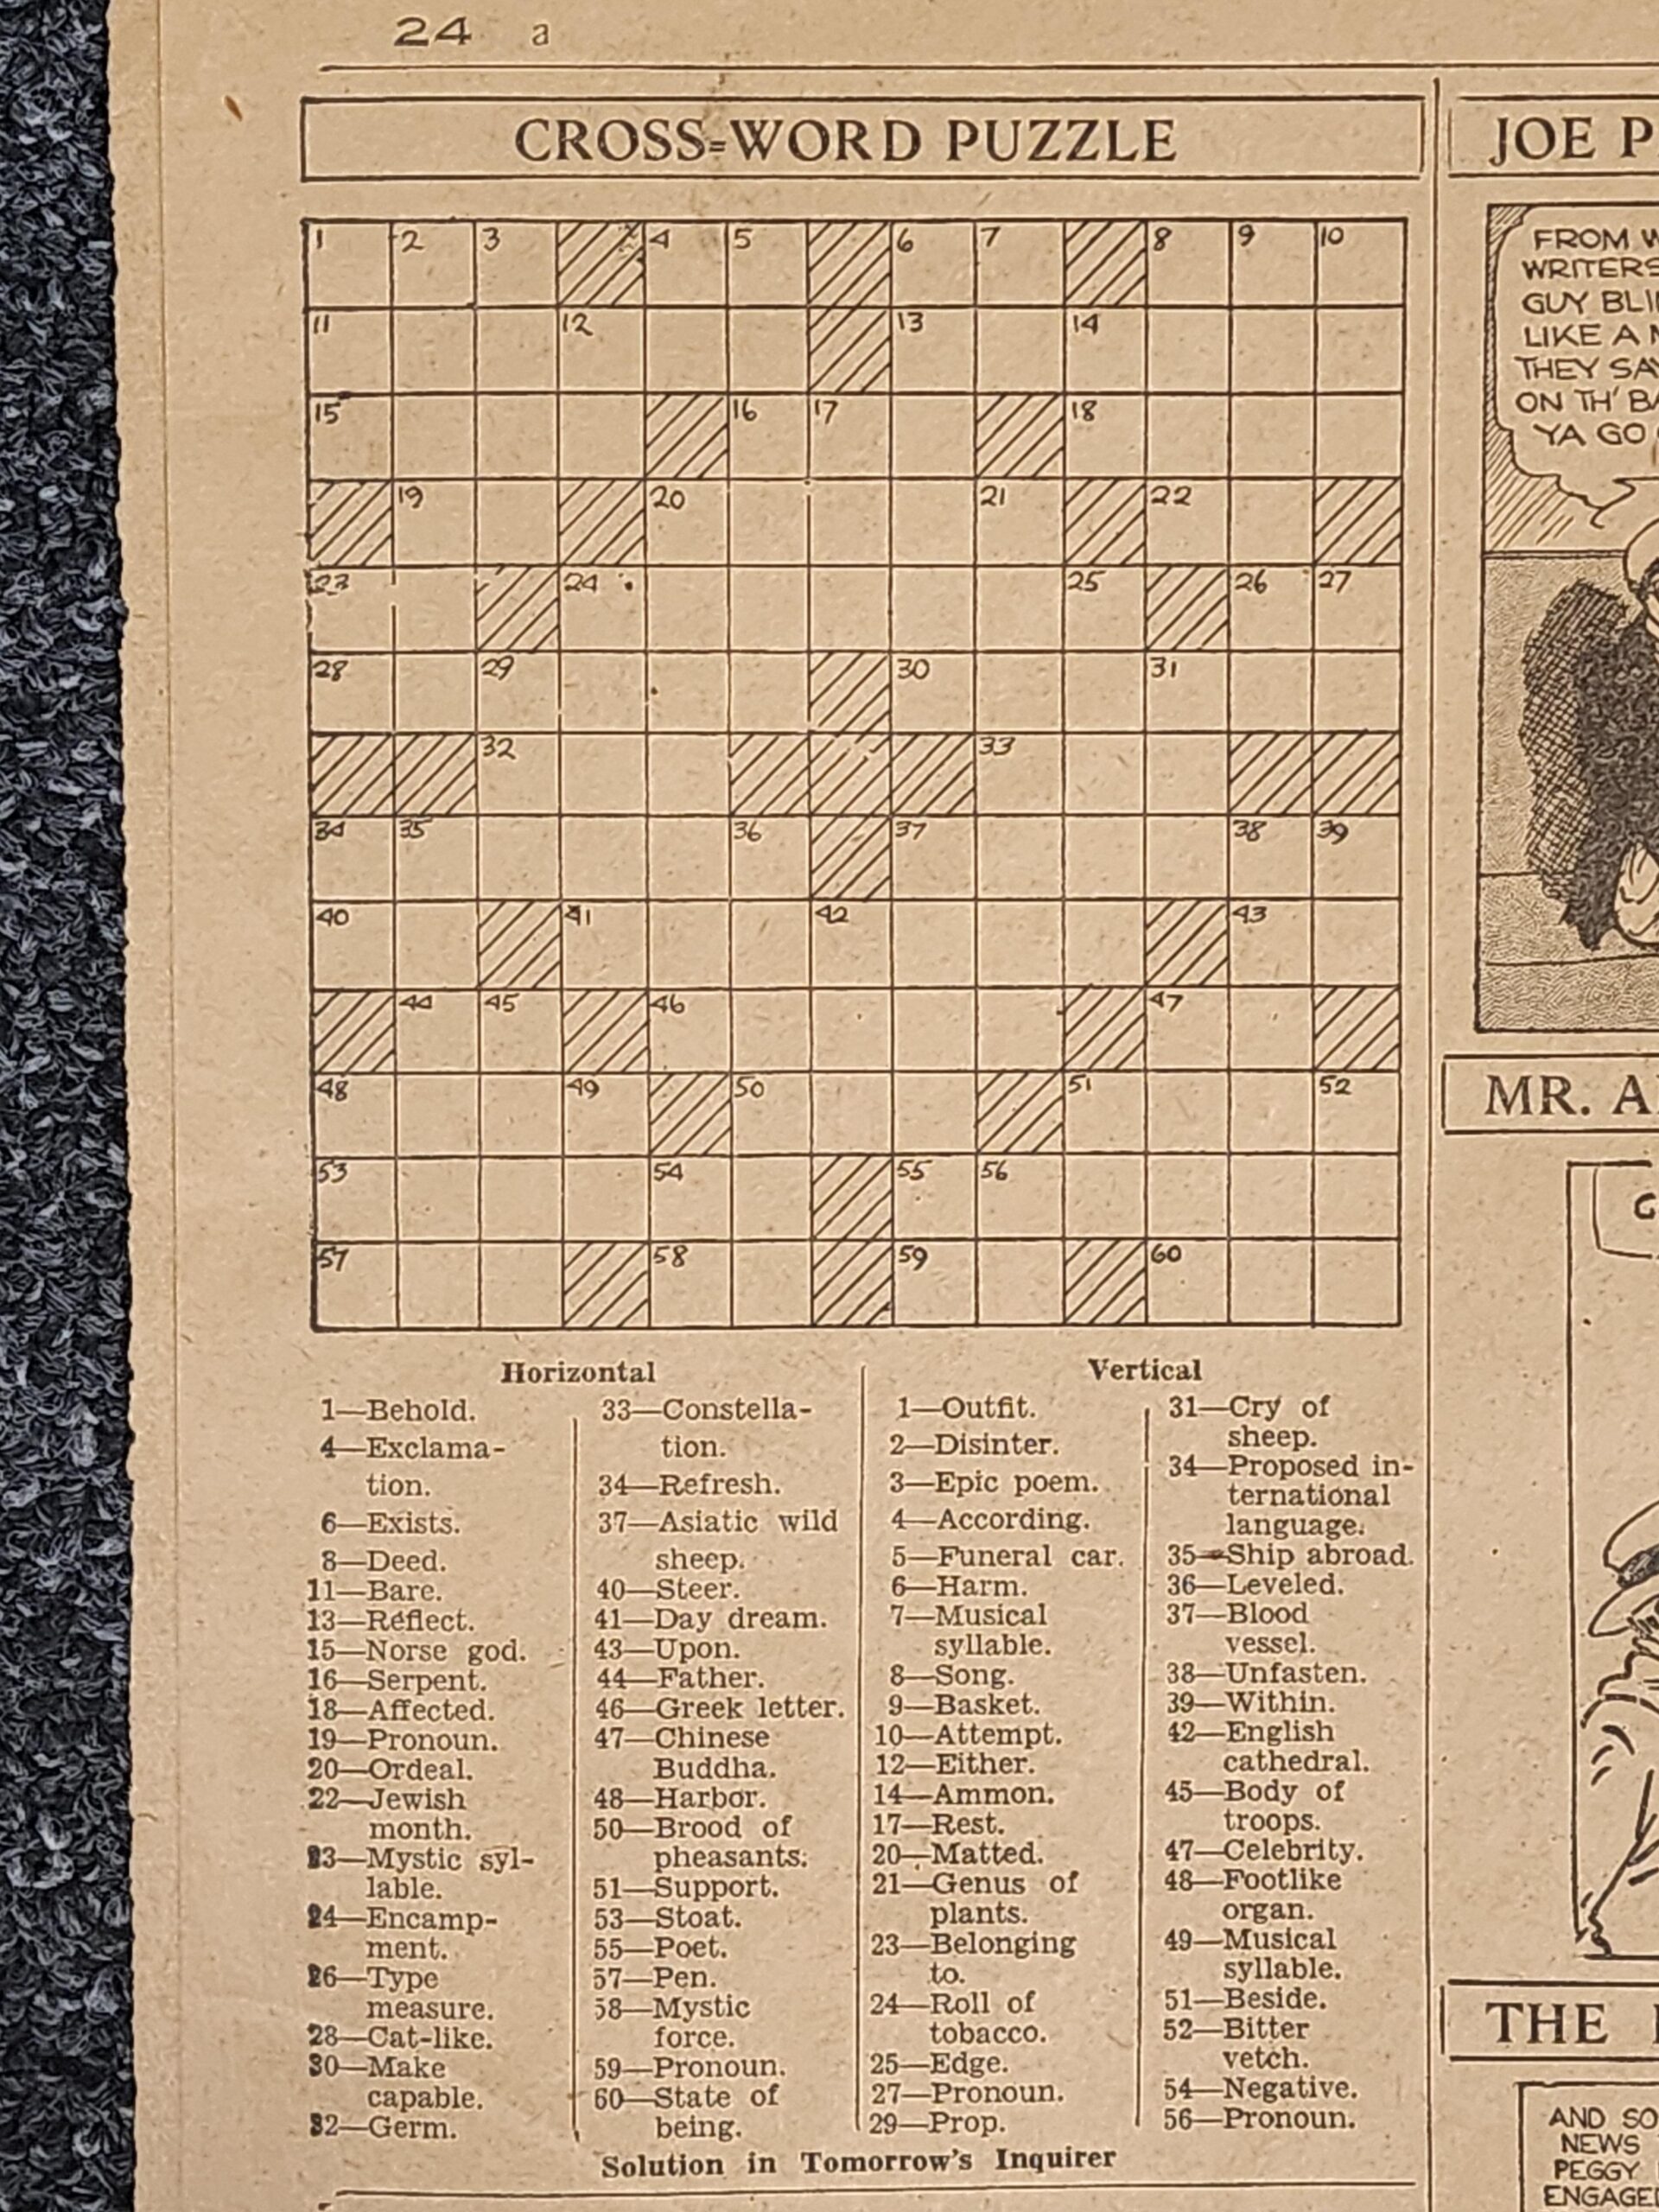 24 a
CROSS=WORD PUZZLE
JOE
1 2 3 4 5 6 7 8 9 10
11 12 13 14
15 16 17 18
19 20 21 22
23 24 25 26 27
28 29 30 31
32 33
34 35 36 37 38 39
40 41 42 43
44 45 46 47
48 49 50 51 52
53 54 55 56
57 58 59 60
Horizontal
1—Behold.
4—Exclama-
tion.
6—Exists.
8—Deed.
11—Bare.
13—Reflect.
15—Norse god.
16—Serpent.
18—Affected.
19—Pronoun.
20—Ordeal.
22—Jewish
month.
23—Mystic syl-
lable.
24—Encamp-
ment.
26—Type
measure.
28—Cat-like.
30—Make
capable.
32—Germ.
33—Constella-
tion.
34—Refresh.
37—Asiatic wild
sheep.
40—Steer.
41—Day dream.
43—Upon.
44—Father.
46—Greek letter.
47—Chinese
Buddha.
48—Harbor.
50—Brood of
pheasants.
51—Support.
53—Stoat.
55—Poet.
57—Pen.
58—Mystic
force.
59—Pronoun.
60—State of
being.
Vertical
1—Outfit.
2—Disinter.
3—Epic poem.
4—According.
5—Funeral car.
6—Harm.
7—Musical
syllable.
8—Song.
9—Basket.
10—Attempt.
12—Either.
14—Ammon.
17—Rest.
20—Matted.
21—Genus of
plants.
23—Belonging
to.
24—Roll of
tobacco.
25—Edge.
27—Pronoun.
29—Prop.
31—Cry of
sheep.
34—Proposed in-
ternational
language.
35—Ship abroad.
36—Leveled.
37—Blood
vessel.
38—Unfasten.
39—Within.
42—English
cathedral.
45—Body of
troops.
47—Celebrity.
48—Footlike
organ.
49—Musical
syllable.
51—Beside.
52—Bitter
vetch.
54—Negative.
56—Pronoun.
Solution in Tomorrow's Inquirer
FROM
WRITERS
GUY
LIKE A
THEY
ON TH'
YA GO
MR.
THE
AND SO
NEWS
PEGGY